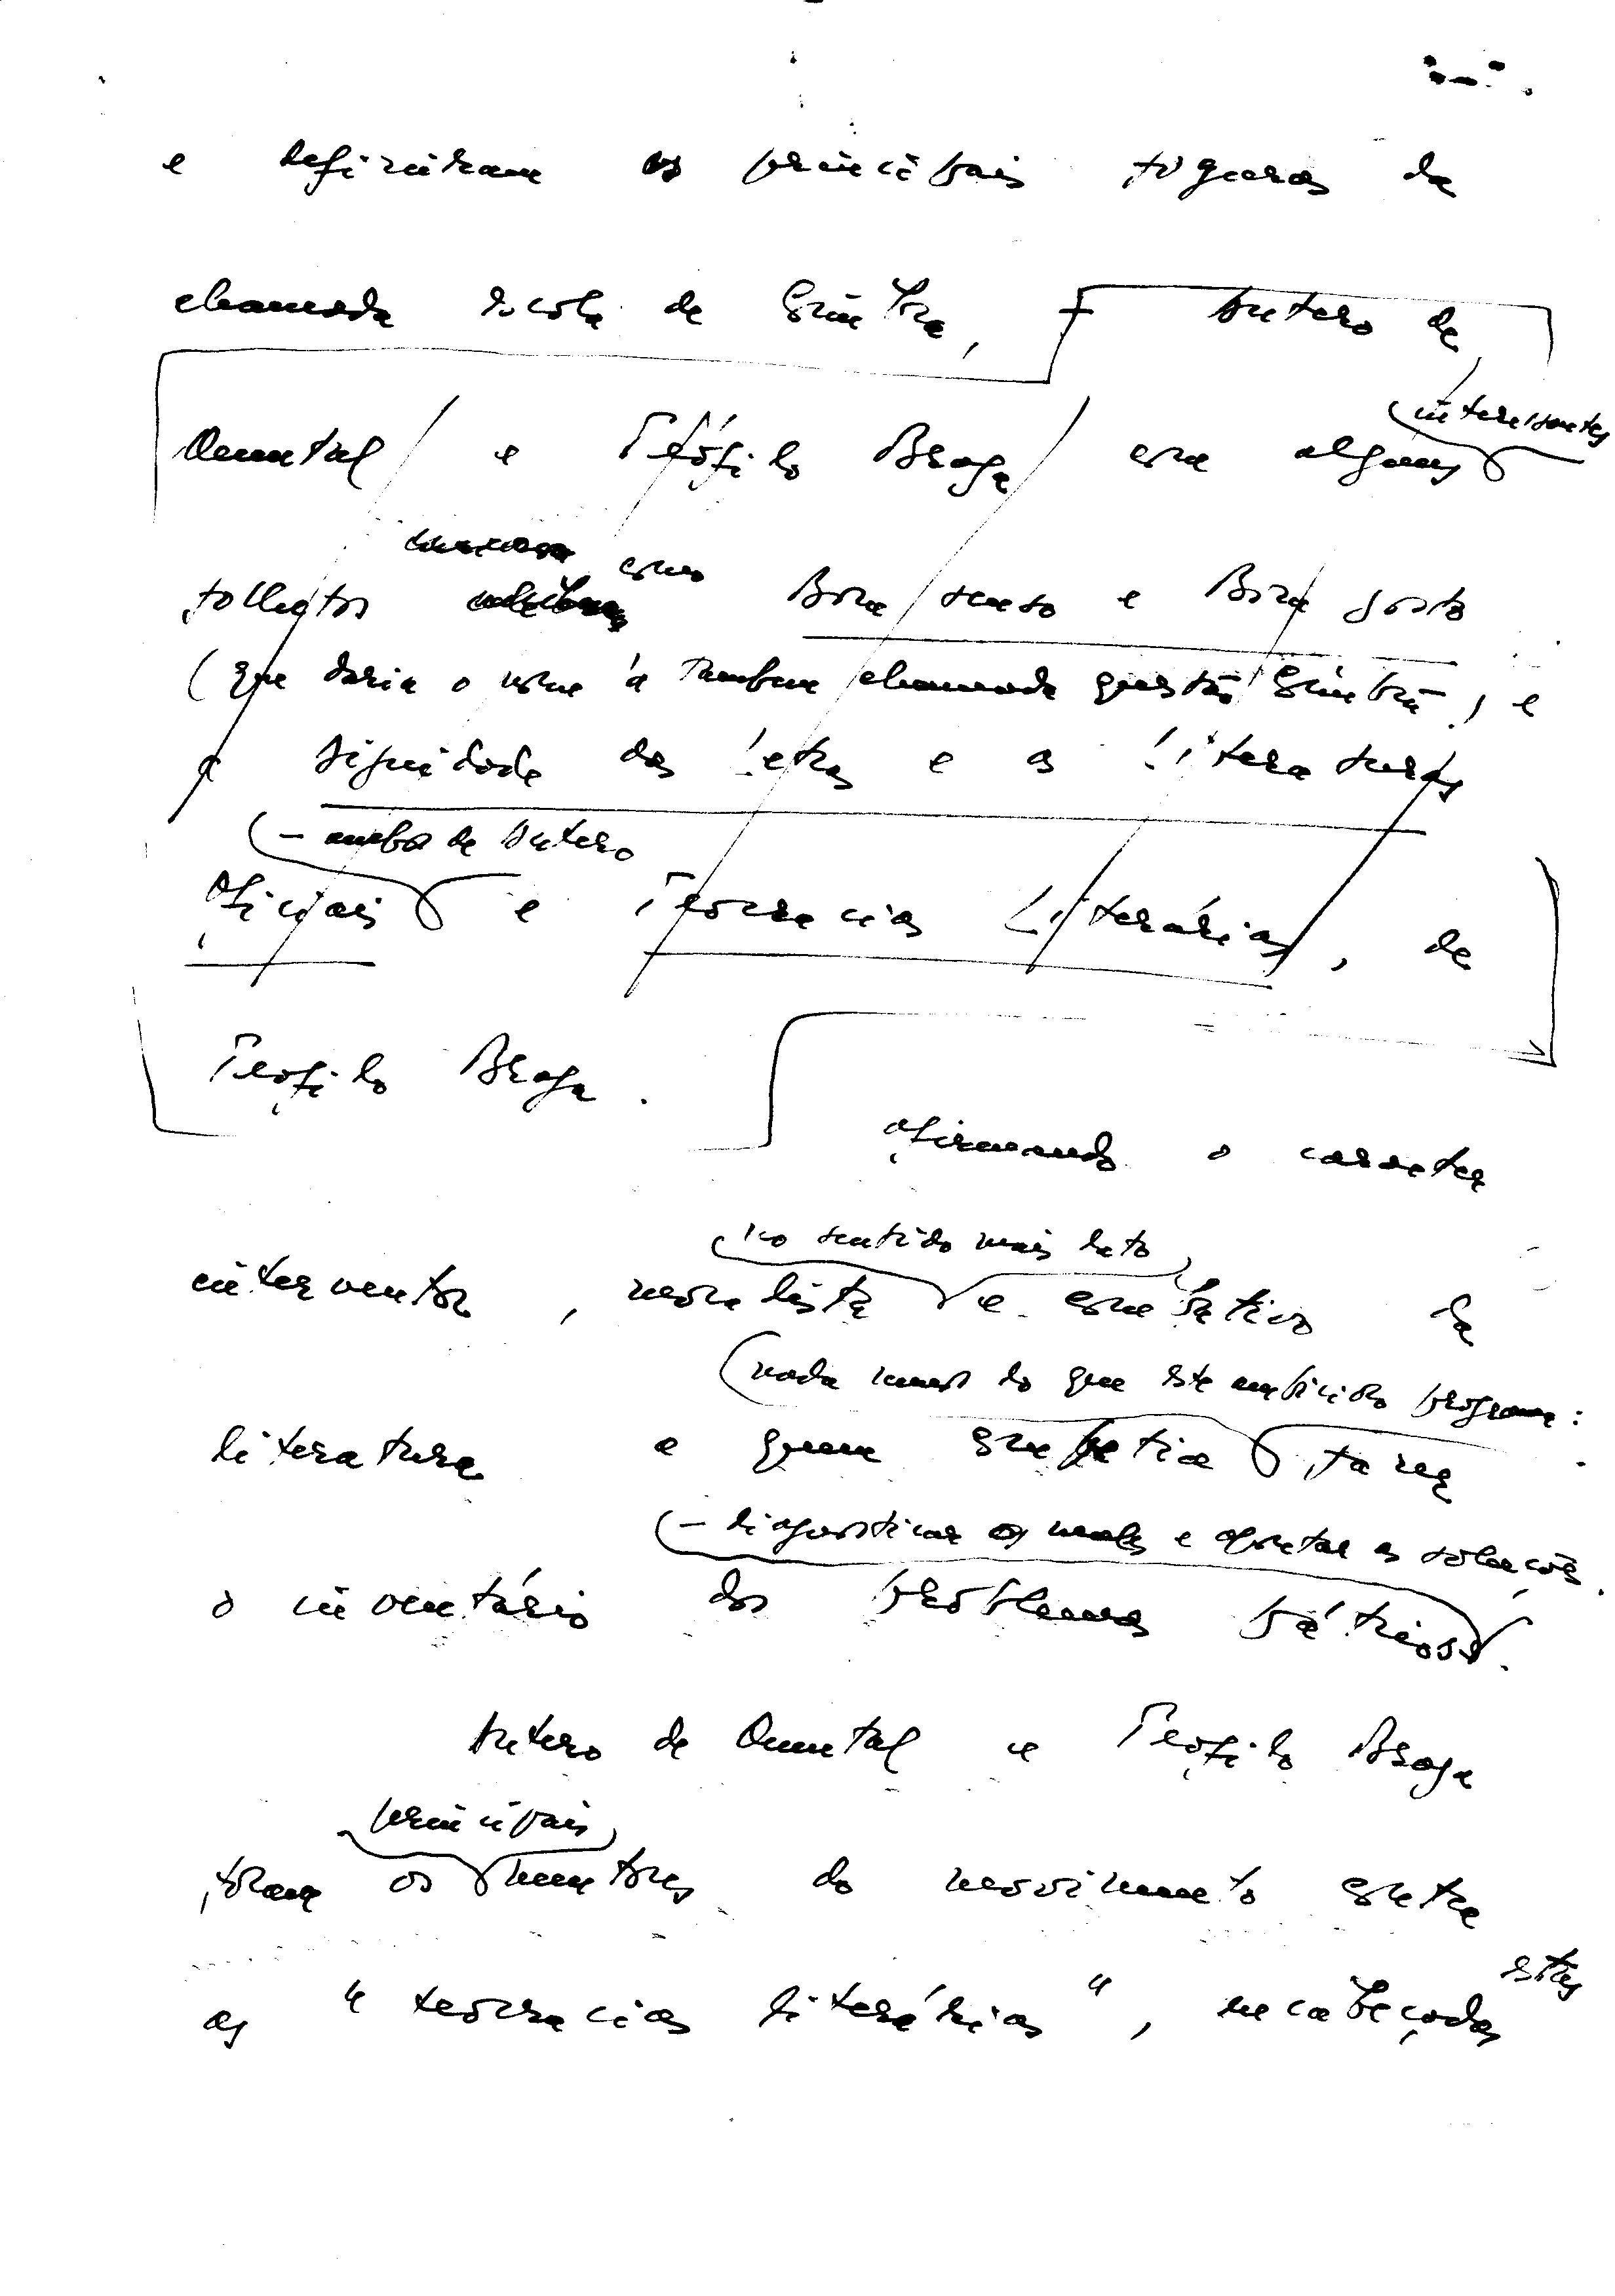 e definiram as principais figuras da
chamada escola de Coimbra, – Antero de
interessantes
Quental e Teófilo Braga em alguns
como
folhetos Bom senso e Bom gosto
(que daria o nome à também chamada questão Coimbrã), e
a Dignidade das Letras e as Literaturas
– ambos de Antero
Oficiais e Teocracias Literárias, de
Teófilo Braga.
afirmando o carácter
no sentido mais lato
interventor, moralista e combativo da
nada menos do que este ambicioso programa:
literatura a quem competia fazer
– diagnosticar os males e apontar as soluções.
o inventário dos problemas pátrios.
Antero de Quental e Teófilo Braga
principais
foram os mentores do movimento contra
estas
as "teocracias literárias", encabeçadas